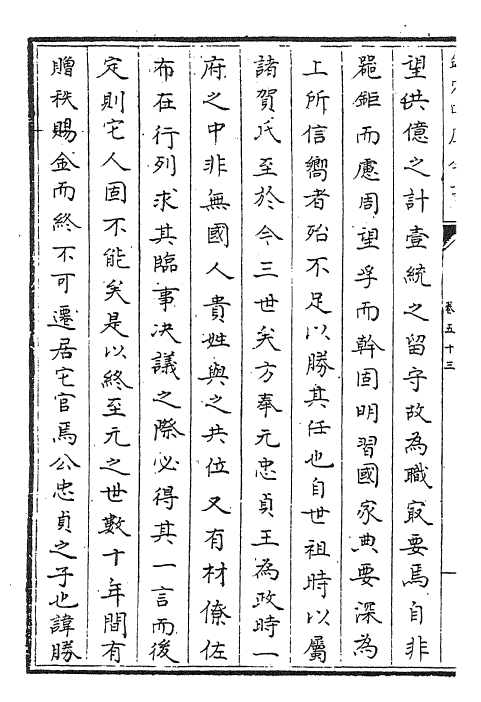 卷五十三
望供億之計壹統之留守故為職㝡要焉自非
噐鉅而慮周望孚而幹固明習國家典要深為
上所信嚮者殆不足以勝其任也自世祖時以屬
諸賀氏至於今三世矣方奉元忠貞王為政時一
府之中非無國人貴姓與之共位又有材僚佐
布在行列求其臨事决議之際必得其一言而後
定則它人固不能矣是以終至元之世數十年間有
贈秩賜金而終不可遷居它官焉公忠貞之子也諱勝